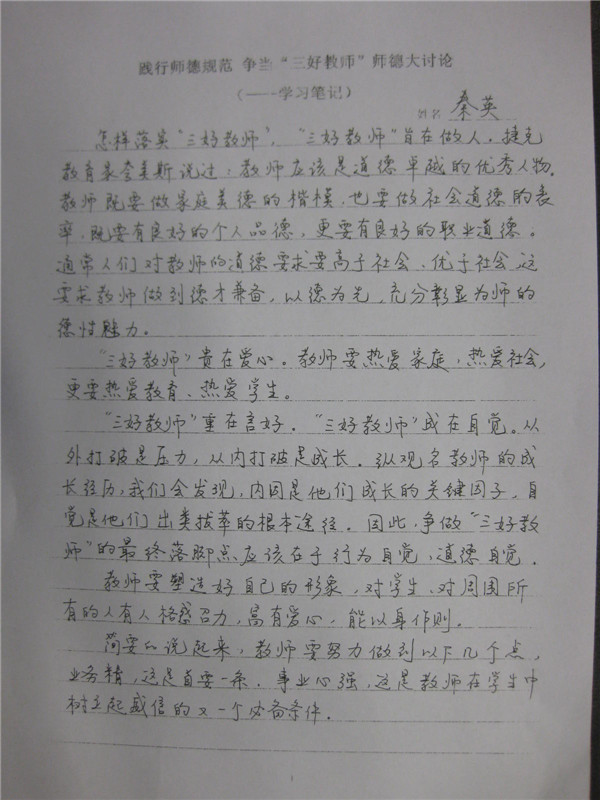 践行师德规范 争当“三好教师”师德大讨论
（——学习笔记）
姓名 秦英
怎样落实“三好教师”，“三好教师”旨在做人，捷克
教育家夸美斯说过：教师应该是道德卓越的优秀人物。
教师既要做家庭美德的楷模，也要做社会道德的表
率，既要有良好的个人品德，更要有良好的职业道德。
通常人们对教师的道德要求要高于社会、优于社会，这
要求教师做到德才兼备，以德为先，充分彰显为师的
德性魅力。
“三好教师”贵在爱心。教师要热爱家庭、热爱社会，
更要热爱教育、热爱学生。
“三好教师”重在言好。“三好教师”成在自觉。从
外打破是压力，从内打破是成长。纵观名教师的成
长经历，我们会发现，内因是他们成长的关键因子，自
觉是他们出类拔萃的根本途径。因此，争做“三好教
师”的最终落脚点应该在于行为自觉、道德自觉。
教师要塑造好自己的形象，对学生、对周围所
有的人有人格感召力，富有爱心，能以身作则。
简要的说起来，教师要努力做到以下几个点，
业务精，这是首要一条。事业心强，这是教师在学生中
树立起威信的又一个必备条件。
1